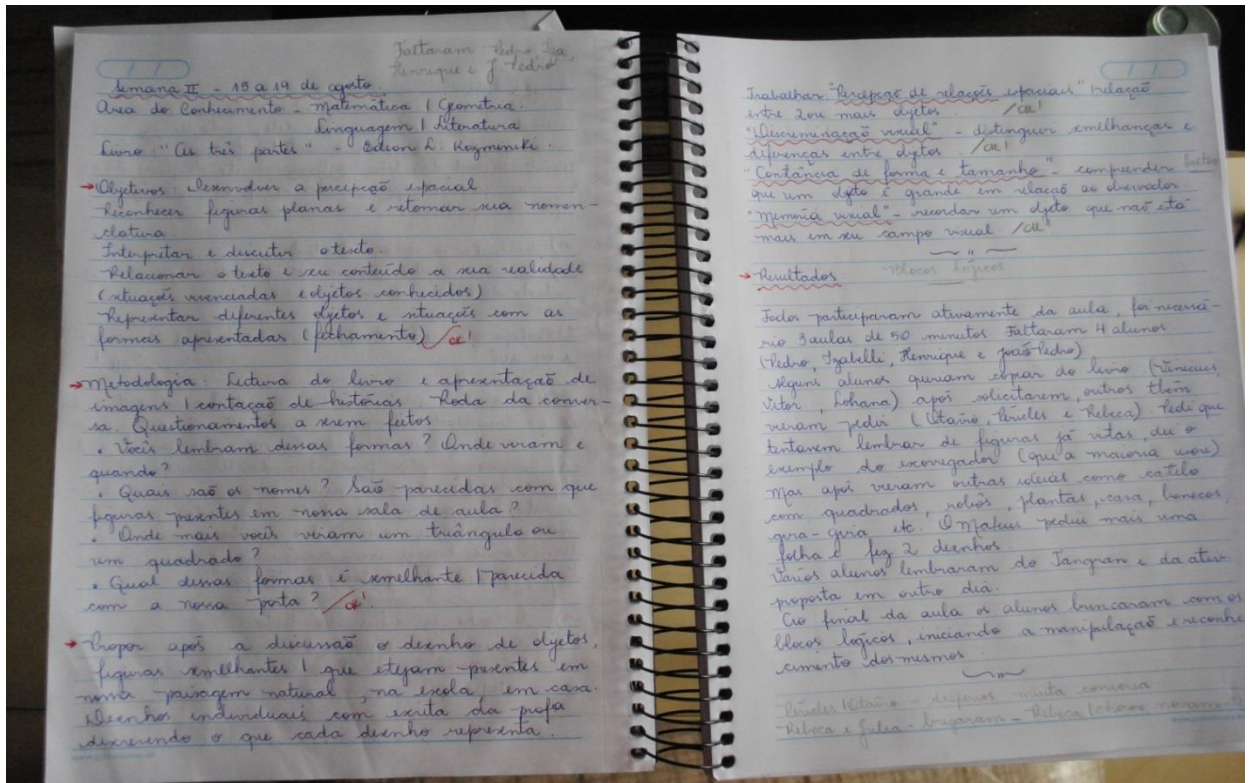 Faltaram: Pedro, Iza,
Henrique e J. Pedro
Semana II - 15 a 19 de agosto.
Área do Conhecimento - Matemática / Geometria.
Linguagem / Literatura
Livro: "As três partes" - Edson L. Kozminski.
→ Objetivos: Desenvolver a percepção espacial
Reconhecer figuras planas e retomar sua nomen-
clatura
Interpretar e discutir o texto.
Relacionar o texto e seu conteúdo a sua realidade
(situações vivenciadas e objetos conhecidos)
Representar diferentes objetos e situações com as
formas apresentadas (fechamento) / ok!
→ Metodologia: Leitura do livro e apresentação de
imagens / contação de histórias. Roda da conver-
sa. Questionamentos a serem feitos
• Vocês lembram dessas formas? Onde viram e
quando?
• Quais são os nomes? São parecidas com que
figuras presentes em nossa sala de aula?
• Onde mais vocês viram um triângulo ou
um quadrado?
• Qual dessas formas é semelhante / parecida
com a nossa porta? / ok!
→ Propor após a discussão o desenho de objetos,
figuras semelhantes / que estejam presentes em
nossa paisagem natural, na escola, em casa.
Desenhos individuais com escrita da profa
descrevendo o que cada desenho representa.
Trabalhar: "Percepção de relações espaciais" relação
entre 2 ou mais objetos. / ok!
"Discriminação visual" - distinguir semelhanças e
diferenças entre objetos / ok!
"Constância de forma e tamanho" - compreender
que um objeto é grande em relação ao observador
"Memória visual" - recordar um objeto que não está
mais em seu campo visual / ok!
→ Resultados Blocos Lógicos
Todos participaram ativamente da aula, foi necessá-
rio 3 aulas de 50 minutos. Faltaram 4 alunos.
(Pedro, Izabelli, Henrique e João Pedro)
Alguns alunos queriam copiar do livro (Vinicius,
Vitor, Lohana) após solicitarem, outros tbém
vieram pedir (Otavio, Péricles e Rebeca) Pedi que
tentassem lembrar de figuras já vistas, dei o
exemplo do escorregador (que a maioria usou)
Mas após vieram outras ideias como catelo
com quadrados, robôs, plantas, casa, bonecos,
gira-gira etc. O Mateus pediu mais uma
folha e fez 2 desenhos.
Vários alunos lembraram do Tangran e da ativ.
proposta em outro dia.
Ao final da aula os alunos brincaram com os
blocos lógicos, iniciando a manipulação e reconhe
cimento dos mesmos.
Péricles / Otavio - muita conversa
Rebeca e Julia - brigaram - Rebeca / chorou novamente